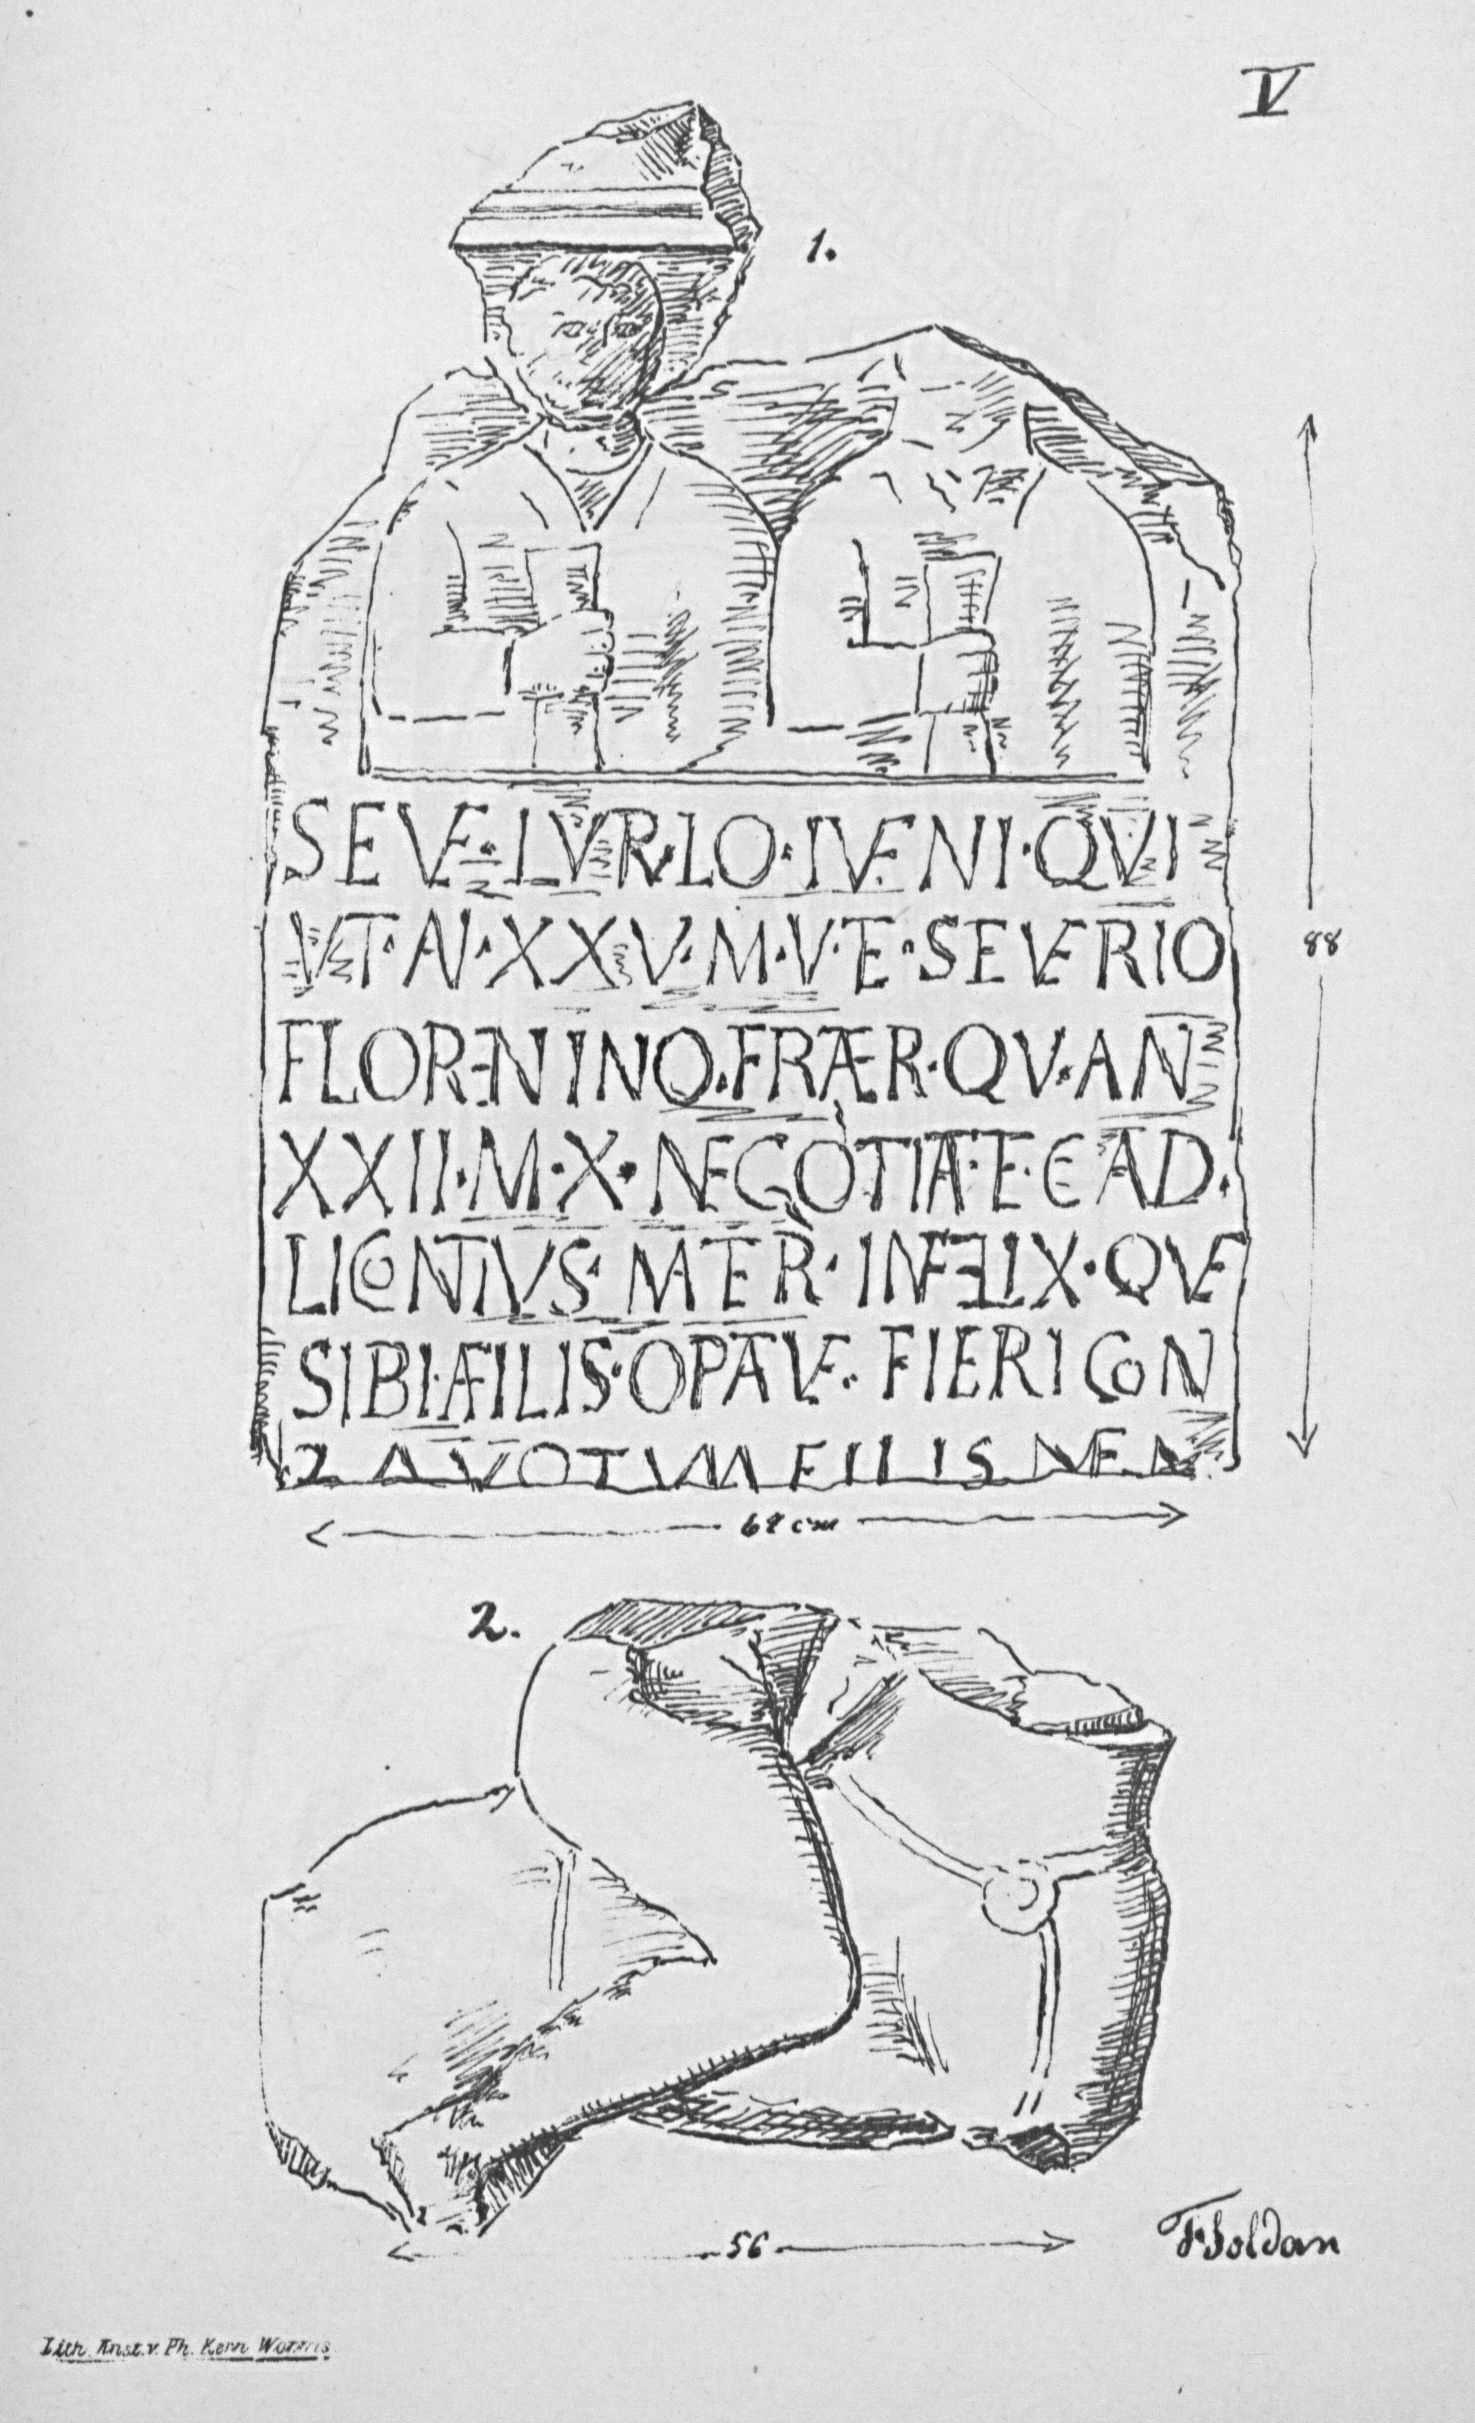 V
1.
SEVE·LVR·LO·IVENI·QVI
VT·AN·XXV·M·V·E·SEVERIO
FLORENINO·FRAER·QV·AN
XXII·M·X·NEGOTIAT·E·E AD·
LICONTIVS·MATER·INFELIX·QVE
SIBI·AFILIS·OPTAVE·FIERI CON
TRA VOTVM FILIS NEM
88
68 cm
2.
56
F. Soldan
Lith. Anst. v. Ph. Kern Worms.